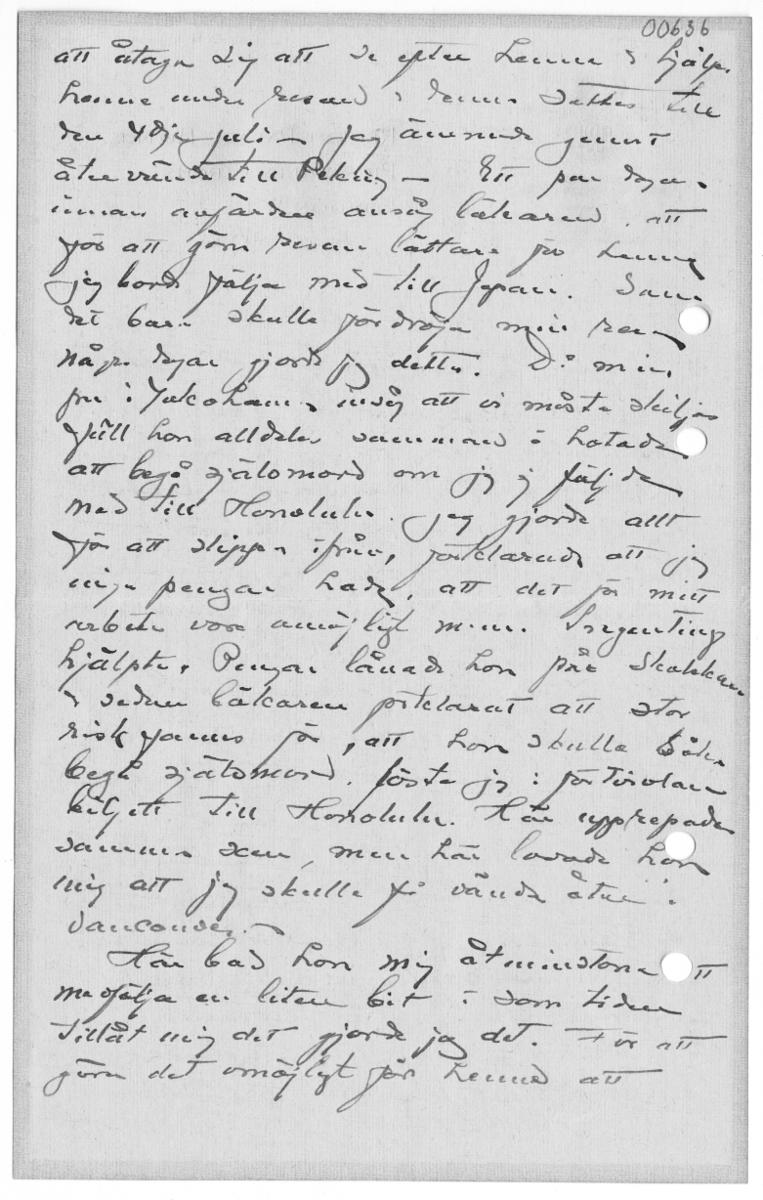 00636
att åtaga sig att se efter henne & hjälpa
henne under resan & denna sattes till
den 4dje juli – jag ämnade genast
återvända till Peking – Ett par dagar
innan avfärden ansåg läkaren, att
för att göra resan lättare för henne
jag borde följa med till Japan. Som
det bara skulle fördröja min resa
några dagar gjorde jag detta. Då min
fru i Yokohama insåg att vi måste skiljas
föll hon alldeles samman & hotade
att begå självmord om jag ej följde
med till Honolulu. Jag gjorde allt
för att slippa ifrån, förklarade att jag
inga pengar hade, att det för mitt
arbete vore omöjligt m.m. Ingenting
hjälpte. Pengar lånade hon från
& sedan läkaren förklarat att stor
risk fanns för, att hon skulle
begå självmord, löste jag i förtvivlan
biljett till Honolulu. Här upprepades
samma scen, men här lovade hon
mig att jag skulle få vända åter i
Vancouver. –
Här bad hon mig åtminstone att
medfölja en liten bit & som tiden
tillät mig det gjorde jag det. För att
göra det omöjligt för henne att